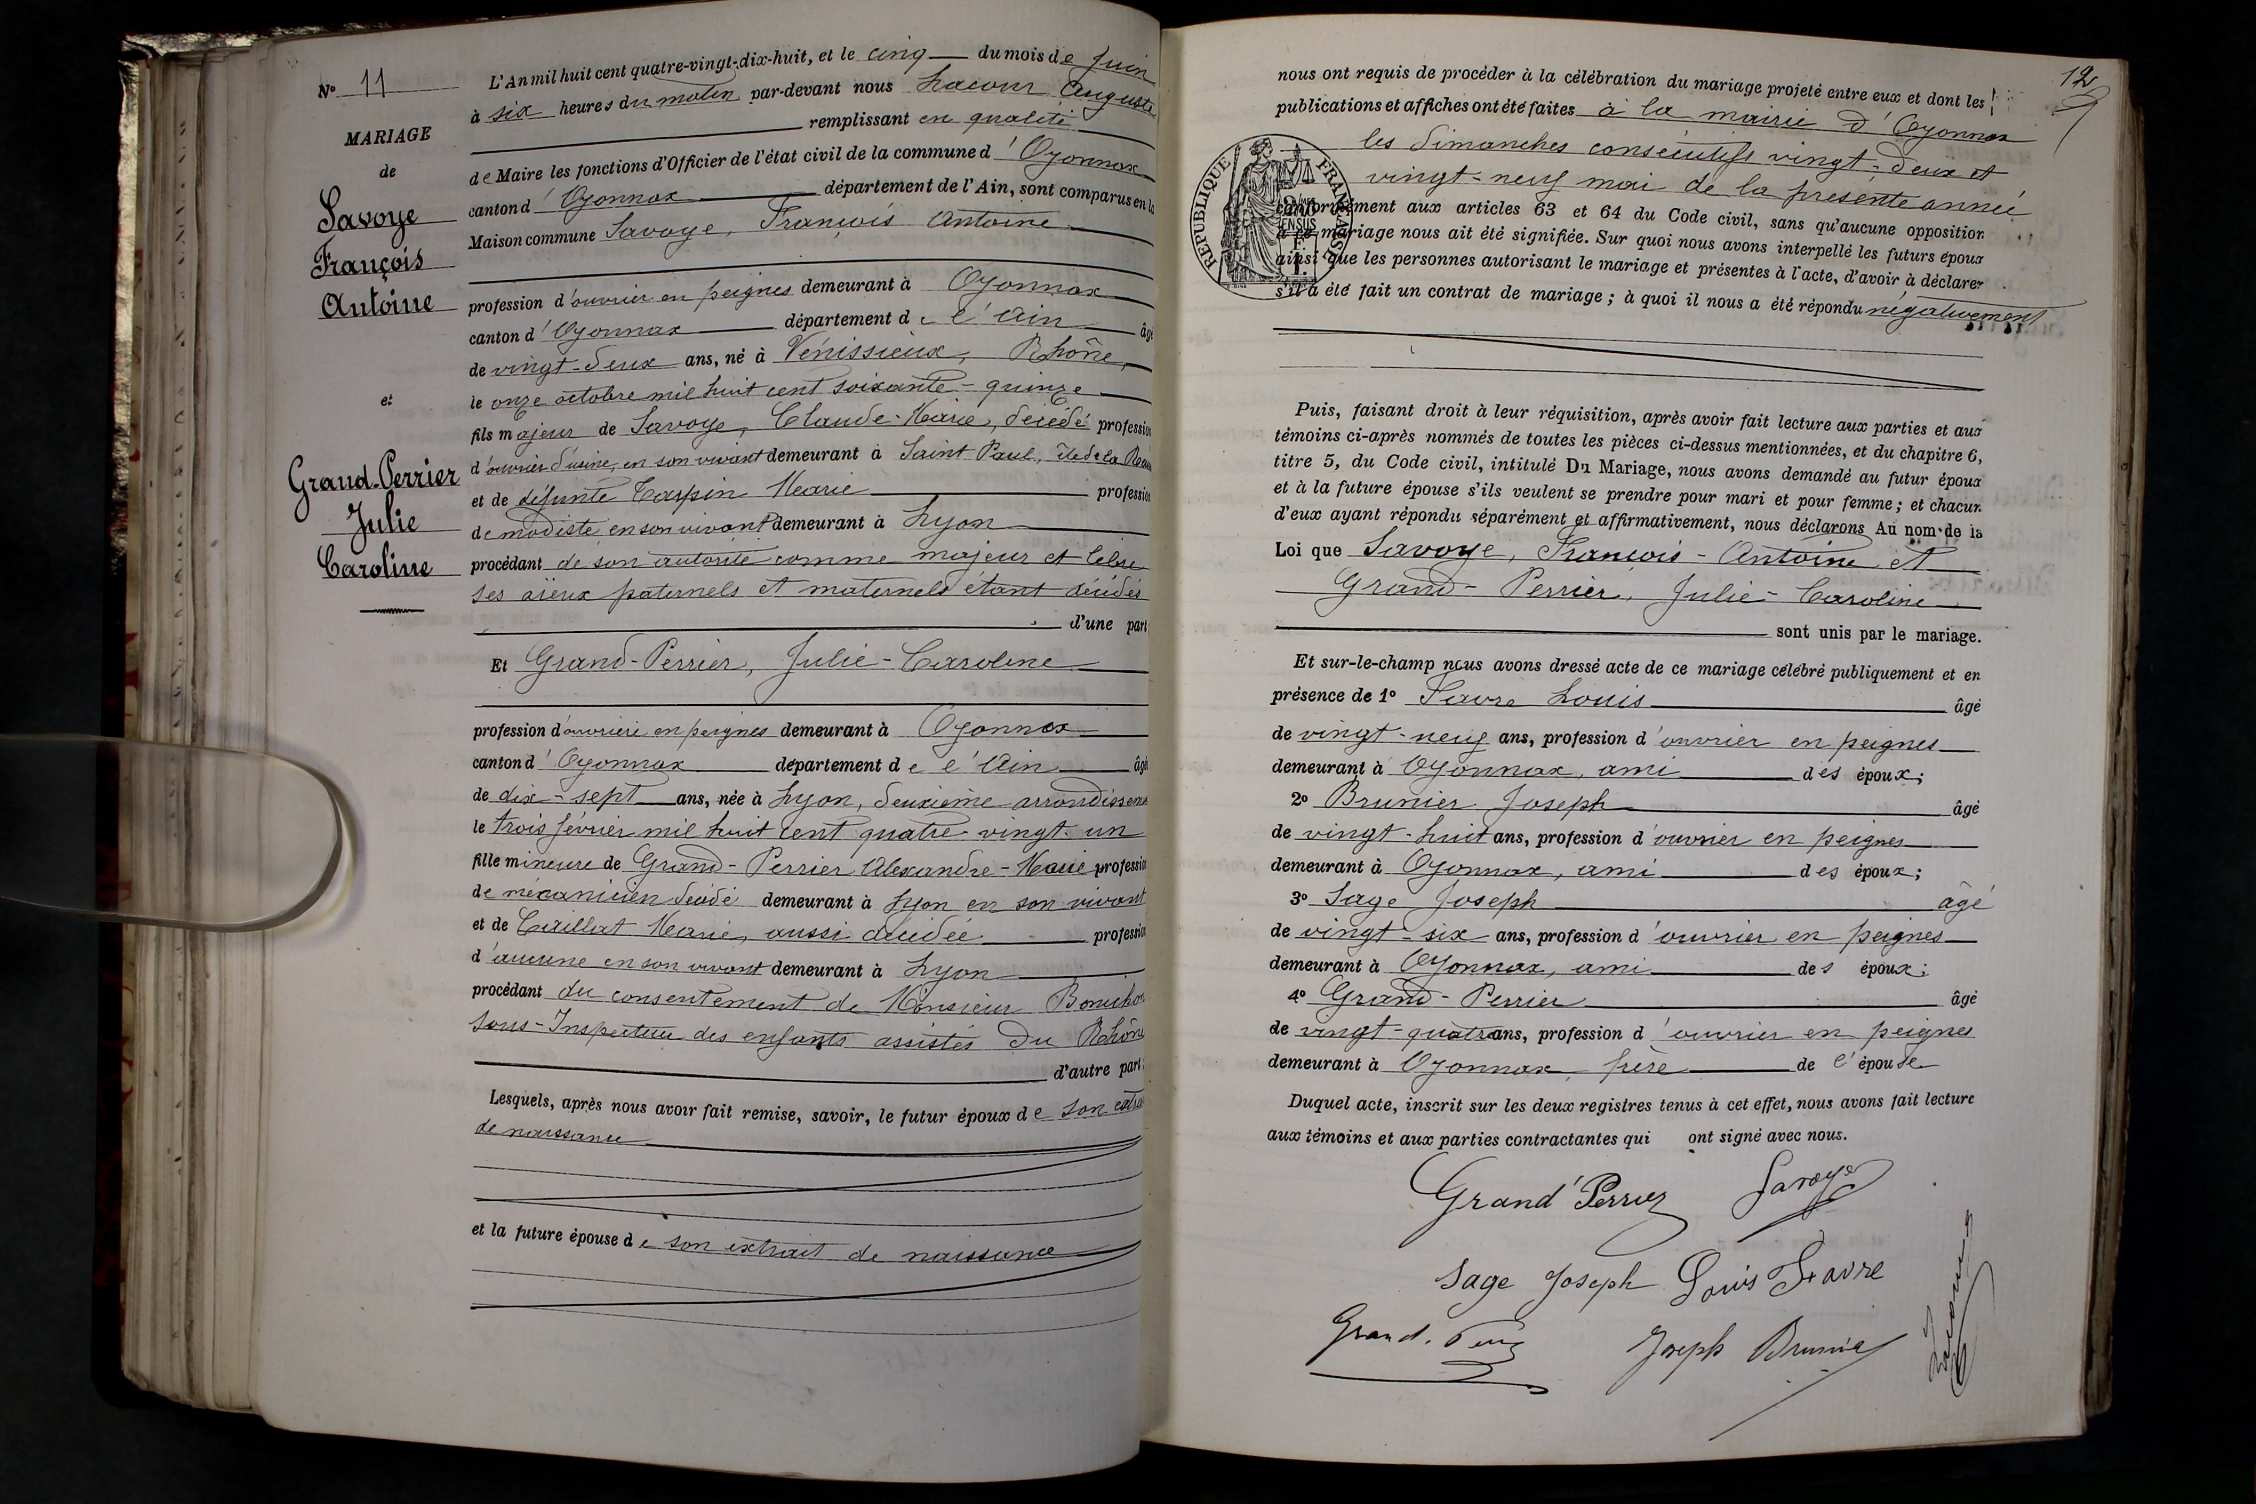 Nº 11
MARIAGE
de
Savoye
François
Antoine
et
Grand-Perrier
Julie
Caroline
L'An mil huit cent quatre-vingt-dix-huit, et le cinq du mois de Juin
à six heures du matin par-devant nous Lacour Auguste
remplissant en qualité
de Maire les fonctions d'Officier de l'état civil de la commune d'Oyonnax
canton d'Oyonnax département de l'Ain, sont comparus en la
Maison commune Savoye, François Antoine
profession d'ouvrier en peignes demeurant à Oyonnax
canton d'Oyonnax département de l'Ain âgé
de vingt-deux ans, né à Vénissieux, Rhône,
le onze octobre mil huit cent soixante-quinze
fils majeur de Savoye, Claude-Marie, décédé profession
d'ouvrier d'usine, en son vivant demeurant à Saint Paul, île de la Réunion
et de défunte Tarpin Marie profession
de modiste en son vivant demeurant à Lyon
procédant de son autorité comme majeur et libre
ses aïeux paternels et maternels étant décédés
d'une part
Et Grand-Perrier, Julie-Caroline
profession d'ouvrière en peignes demeurant à Oyonnax
canton d'Oyonnax département de l'Ain âgé
de dix-sept ans, née à Lyon, deuxième arrondissement
le trois février mil huit cent quatre-vingt-un
fille mineure de Grand-Perrier Alexandre-Marie profession
de mécanicien décédé demeurant à Lyon en son vivant
et de Caillat Marie, aussi décédée profession
d'aucune en son vivant demeurant à Lyon
procédant du consentement de Monsieur
Sous-Inspecteur des enfants assistés du Rhône
d'autre part;
Lesquels, après nous avoir fait remise, savoir, le futur époux de son extrait
de naissance
et la future épouse de son extrait de naissance
12
nous ont requis de procéder à la célébration du mariage projeté entre eux et dont les
publications et affiches ont été faites à la mairie d'Oyonnax
les dimanches consécutifs vingt-deux et
vingt-neuf mai de la présente année
RÉPUBLIQUE FRANÇAISE
conformément aux articles 63 et 64 du Code civil, sans qu'aucune opposition
à ce mariage nous ait été signifiée. Sur quoi nous avons interpellé les futurs époux
ainsi que les personnes autorisant le mariage et présentes à l'acte, d'avoir à déclarer
s'il a été fait un contrat de mariage; à quoi il nous a été répondu négativement
Puis, faisant droit à leur réquisition, après avoir fait lecture aux parties et aux
témoins ci-après nommés de toutes les pièces ci-dessus mentionnées, et du chapitre 6,
titre 5, du Code civil, intitulé Du Mariage, nous avons demandé au futur époux
et à la future épouse s'ils veulent se prendre pour mari et pour femme; et chacun
d'eux ayant répondu séparément et affirmativement, nous déclarons Au nom de la
Loi que Savoye, François-Antoine et
Grand-Perrier, Julie-Caroline
sont unis par le mariage.
Et sur-le-champ nous avons dressé acte de ce mariage célébré publiquement et en
présence de 1º Favre Louis âgé
de vingt-neuf ans, profession d'ouvrier en peignes
demeurant à Oyonnax, ami des époux;
2º Brunier Joseph âgé
de vingt-huit ans, profession d'ouvrier en peignes
demeurant à Oyonnax, ami des époux;
3º Sage Joseph âgé
de vingt-six ans, profession d'ouvrier en peignes
demeurant à Oyonnax, ami des époux;
4º Grand-Perrier âgé
de vingt-quatre ans, profession d'ouvrier en peignes
demeurant à Oyonnax, frère de l'épouse
Duquel acte, inscrit sur les deux registres tenus à cet effet, nous avons fait lecture
aux témoins et aux parties contractantes qui ont signé avec nous.
Grand'Perrier Savoye
Sage Joseph Louis Favre
Grand. Joseph Brunier
Lacour